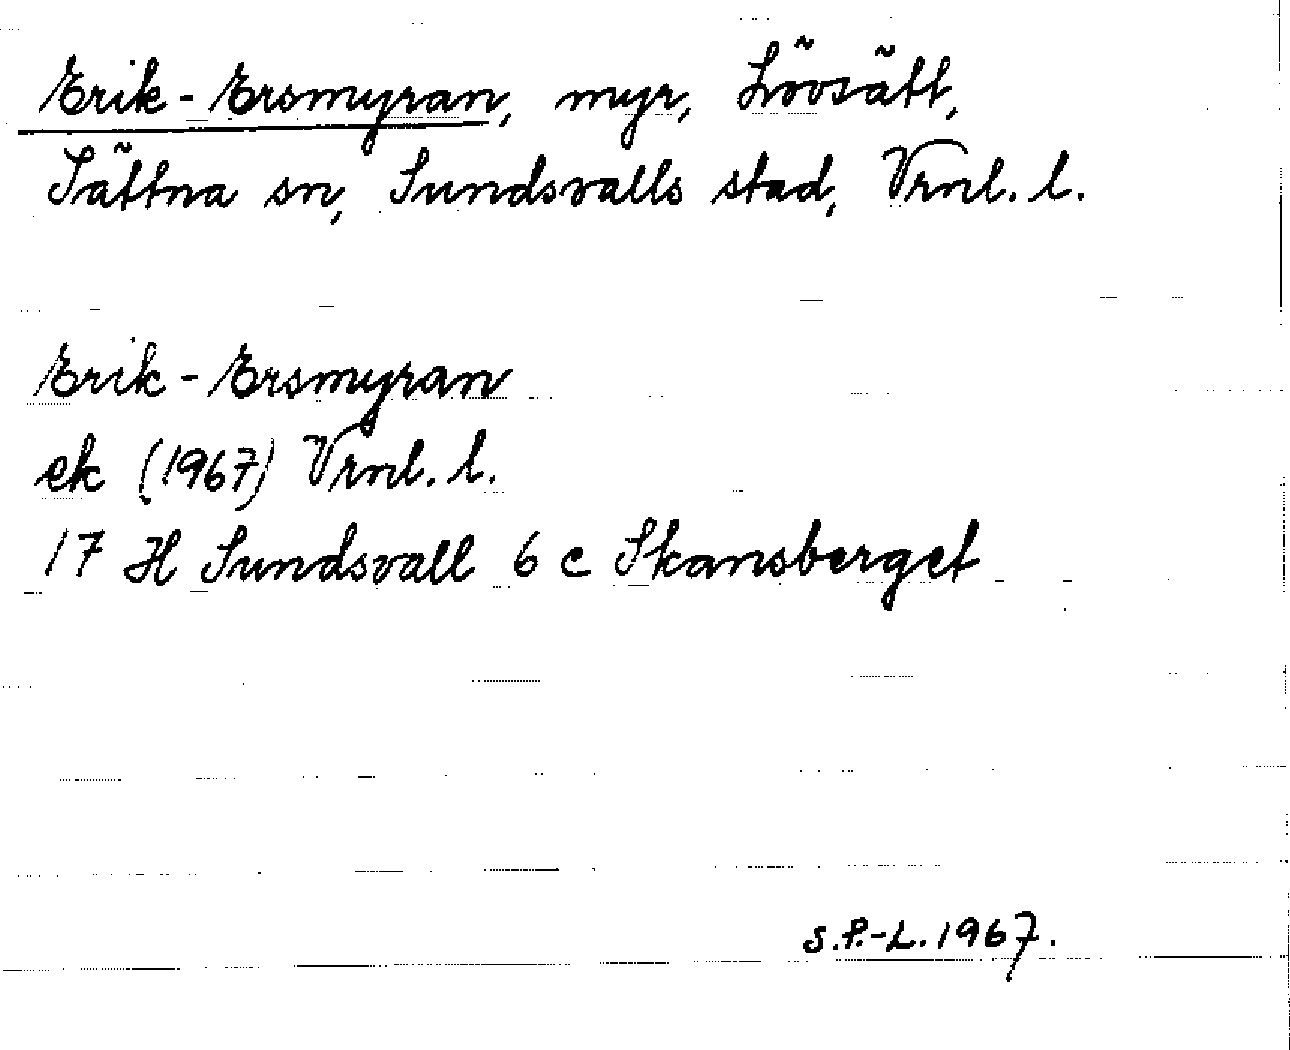 Erik-Ersmyran, myr, Lövsätt,
Sättna sn, Sundsvalls stad, Vrnl. l.
Erik-Ersmyran
ek (1967) Vrnl. l.
17 H Sundsvall 6 c Skansberget
S.P.-L. 1967.